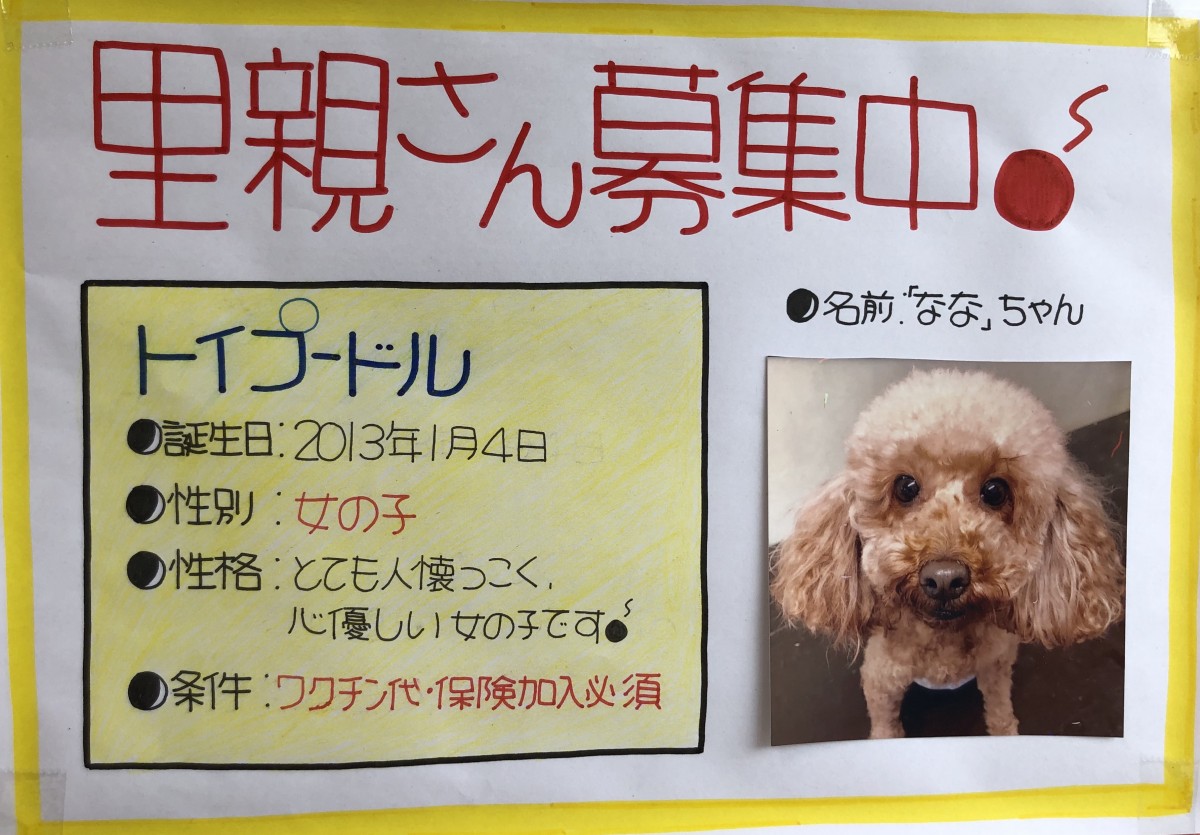 里親さん募集中
トイプードル
●誕生日：2013年1月4日
●性別：女の子
●性格：とても人懐っこく、
心優しい女の子です
●条件：ワクチン代・保険加入必須
●名前：「なな」ちゃん